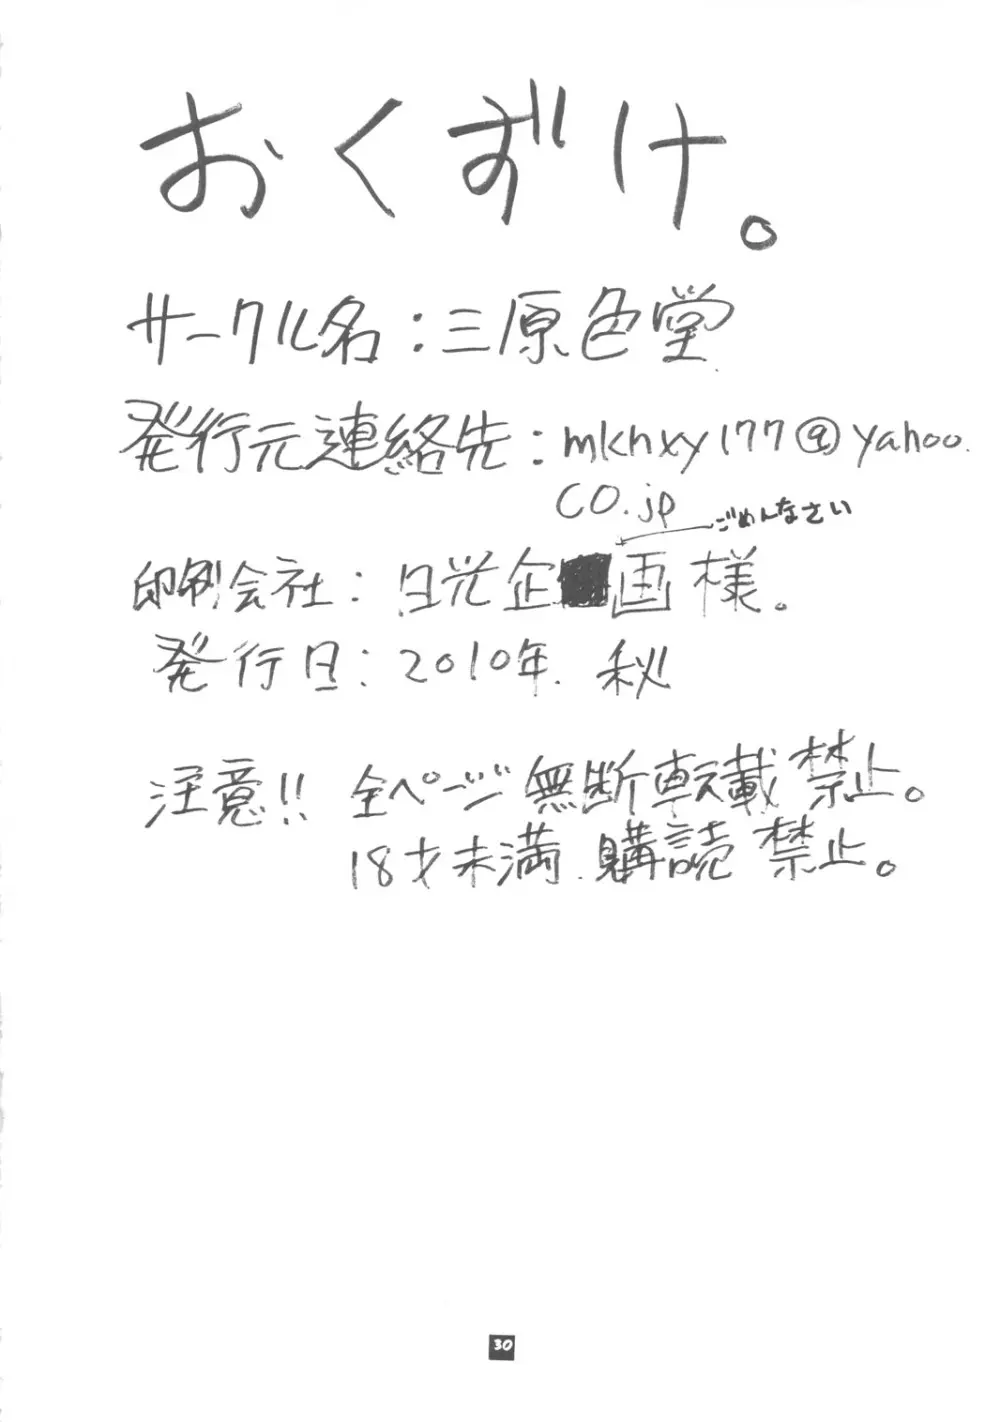 おくずけ。
サークル名:三原色堂
発行元連絡先:mkhxy177@yahoo.
co.jp
ごめんなさい
印刷会社:日光企画様。
発行日:2010年.秋
注意!! 全ページ無断転載禁止。
18才未満.購読禁止。
30